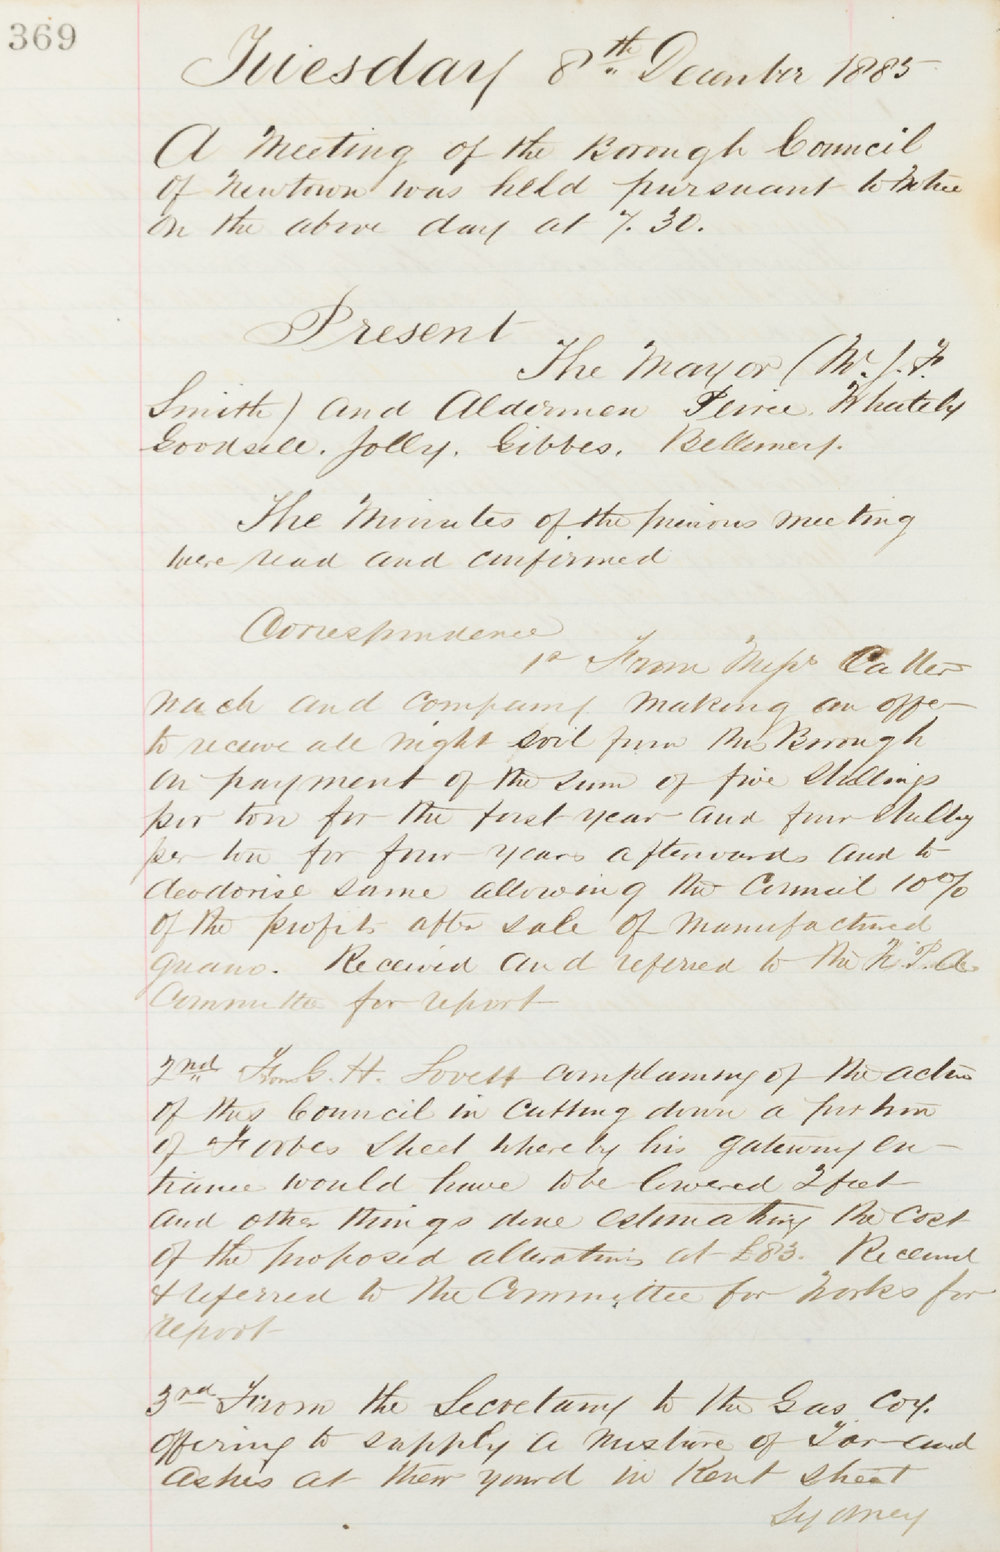 369
Tuesday 8th December 1885
A Meeting of the Borough Council
of Newtown was held pursuant to Notice
on the above day at 7.30.
Present
The Mayor (Mr. J. F.
Smith) and Aldermen Peirce, Whately
Goodsell, Jolly, Gibbes, Bellemey.
The Minutes of the previous meeting
were read and confirmed
Correspondence
1st From Messrs Catter
nach and company making an offer
to receive all night soil from the Borough
on payment of the sum of five shillings
per ton for the first year and four shillgs
per ton for four years afterwards and to
deodorise same allowing the Council 10%
of the profits after sale of manufactured
guano. Received and referred to the
Committee for report
2nd From G. H. Lovett complaining of the action
of this Council in cutting down a portion
of Forbes Street whereby his gateway en-
trance would have to be lowered 2 feet
and other things done estimating the cost
of the proposed alterations at £83. Received
& referred to the Committee for Works for
report
3rd From the Secretary to the Gas Coy.
offering to supply a mixture of Tar and
Ashes at their yard in Kent Street
Sydney